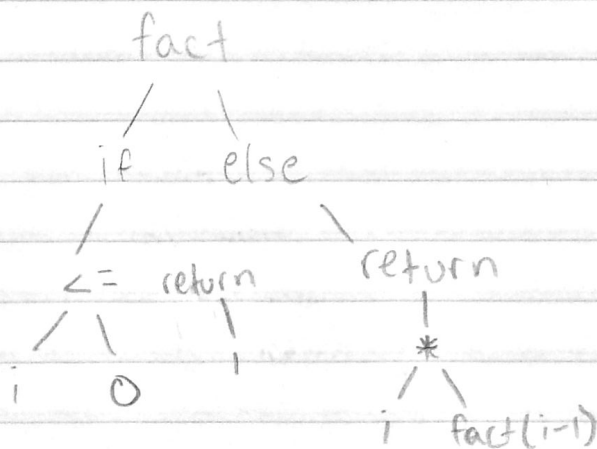 fact
if else
<= return return
i 0 1 *
i fact(i-1)